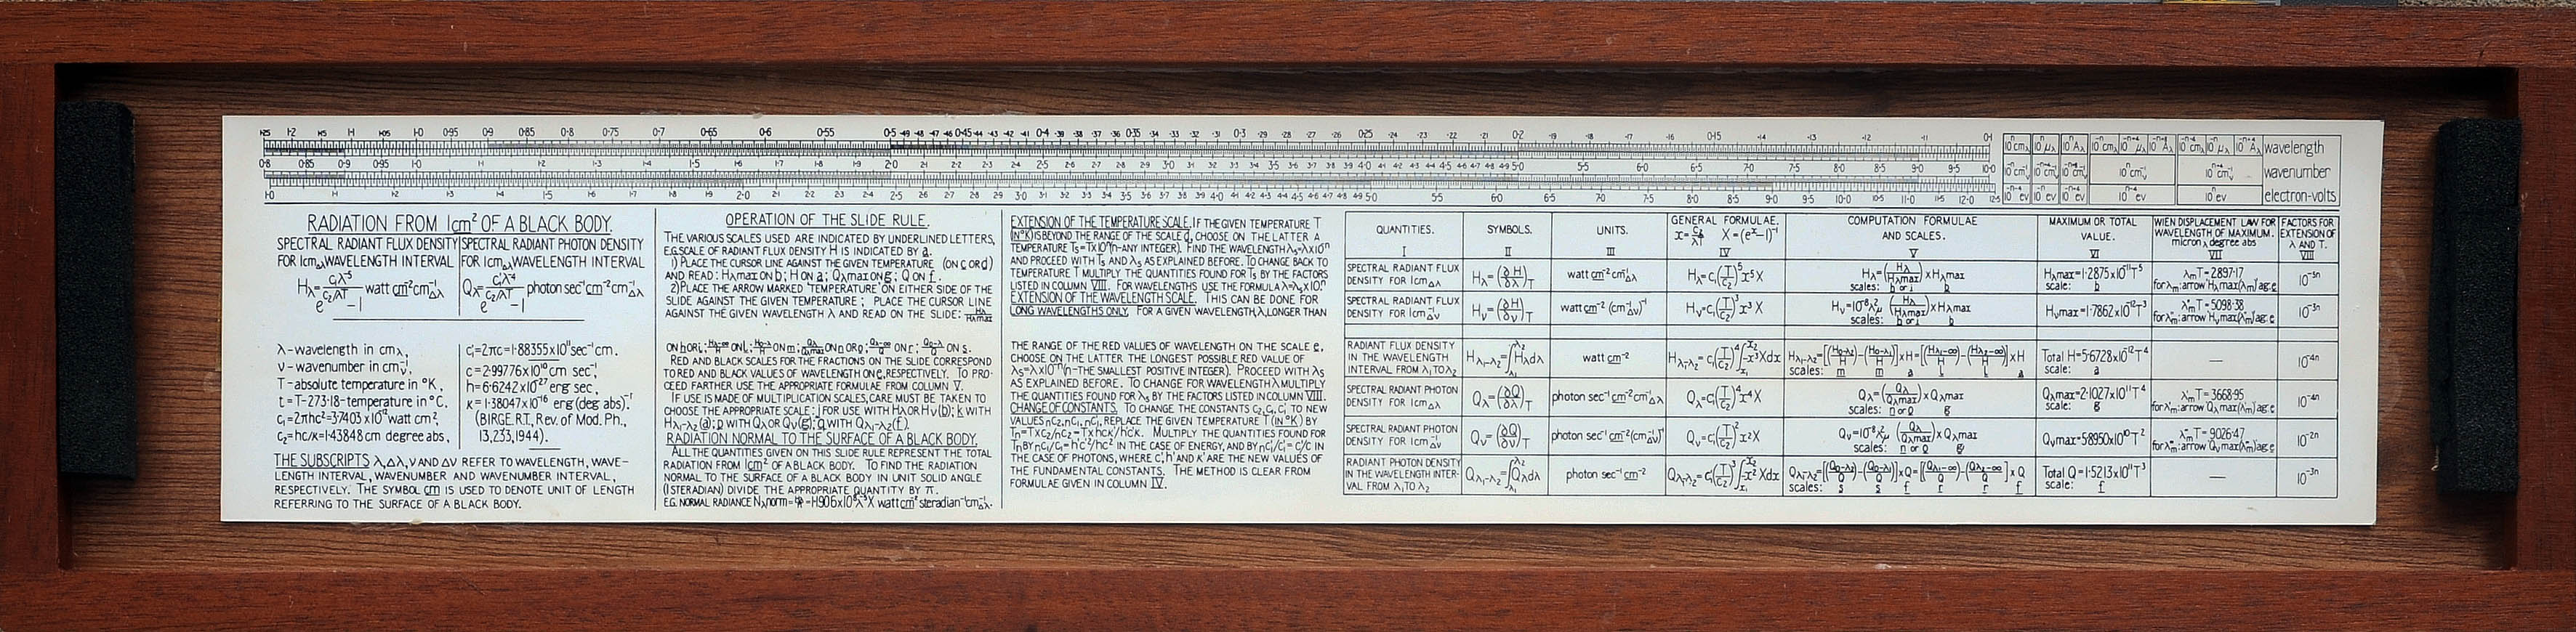 1·25 1·2 1·15 1·1 1·05 1·0 0·95 0·9 0·85 0·8 0·75 0·7 0·65 0·6 0·55 0·5 ·49 ·48 ·47 ·46 0·45 ·44 ·43 ·42 ·41 0·4 ·39 ·38 ·37 ·36 0·35 ·34 ·33 ·32 ·31 0·3 ·29 ·28 ·27 ·26 0·25 ·24 ·23 ·22 ·21 0·2 ·19 ·18 ·17 ·16 0·15 ·14 ·13 ·12 ·11 0·1
wavelength
0·8 0·85 0·9 0·95 1·0 1·1 1·2 1·3 1·4 1·5 1·6 1·7 1·8 1·9 2·0 2·1 2·2 2·3 2·4 2·5 2·6 2·7 2·8 2·9 3·0 3·1 3·2 3·3 3·4 3·5 3·6 3·7 3·8 3·9 4·0 4·1 4·2 4·3 4·4 4·5 4·6 4·7 4·8 4·9 5·0 5·5 6·0 6·5 7·0 7·5 8·0 8·5 9·0 9·5 10·0
wavenumber
1·0 1·1 1·2 1·3 1·4 1·5 1·6 1·7 1·8 1·9 2·0 2·1 2·2 2·3 2·4 2·5 2·6 2·7 2·8 2·9 3·0 3·1 3·2 3·3 3·4 3·5 3·6 3·7 3·8 3·9 4·0 4·1 4·2 4·3 4·4 4·5 4·6 4·7 4·8 4·9 5·0 5·5 6·0 6·5 7·0 7·5 8·0 8·5 9·0 9·5 10·0 10·5 11·0 11·5 12·0 12·5
electron-volts
RADIATION FROM 1cm² OF A BLACK BODY.
SPECTRAL RADIANT FLUX DENSITY
FOR 1cm Δλ WAVELENGTH INTERVAL
Hλ = c₁λ⁻⁵ / (e^(c₂/λT) − 1) watt cm⁻² cm⁻¹Δλ
SPECTRAL RADIANT PHOTON DENSITY
FOR 1cm Δλ WAVELENGTH INTERVAL
Qλ = c₁'λ⁻⁴ / (e^(c₂/λT) − 1) photon sec⁻¹ cm⁻² cm⁻¹Δλ
λ – wavelength in cmλ,
ν – wavenumber in cm⁻¹ν,
T – absolute temperature in °K,
t = T–273·18 – temperature in °C.
c₁ = 2πhc² = 3·7403 x 10⁻¹² watt cm²,
c₂ = hc/κ = 1·43848 cm degree abs,
c₁' = 2πc = 1·88355 x 10¹¹ sec⁻¹ cm.
c = 2·99776 x 10¹⁰ cm sec⁻¹
h = 6·6242 x 10⁻²⁷ erg sec,
κ = 1·38047 x 10⁻¹⁶ erg (deg abs)⁻¹
(BIRGE. R.T., Rev. of Mod. Ph.,
13, 233, 1944).
THE SUBSCRIPTS λ, Δλ, ν AND Δν REFER TO WAVELENGTH, WAVE–
LENGTH INTERVAL, WAVENUMBER AND WAVENUMBER INTERVAL,
RESPECTIVELY. THE SYMBOL cm IS USED TO DENOTE UNIT OF LENGTH
REFERRING TO THE SURFACE OF A BLACK BODY.
OPERATION OF THE SLIDE RULE.
THE VARIOUS SCALES USED ARE INDICATED BY UNDERLINED LETTERS,
E.G. SCALE OF RADIANT FLUX DENSITY H IS INDICATED BY a.
1) PLACE THE CURSOR LINE AGAINST THE GIVEN TEMPERATURE (ON c OR d)
AND READ: Hλmax ON b; H ON a; Qλmax ON g; Q ON f.
2) PLACE THE ARROW MARKED 'TEMPERATURE' ON EITHER SIDE OF THE
SLIDE AGAINST THE GIVEN TEMPERATURE; PLACE THE CURSOR LINE
AGAINST THE GIVEN WAVELENGTH λ AND READ ON THE SLIDE: Hλ/Hλmax
ON h OR i; Hλ-∞/H ON l; H0-λ/H ON m; Qλ/Qλmax ON n OR o; Qλ-∞/Q ON r; Q0-λ/Q ON s.
RED AND BLACK SCALES FOR THE FRACTIONS ON THE SLIDE CORRESPOND
TO RED AND BLACK VALUES OF WAVELENGTH ON e, RESPECTIVELY. TO PRO–
CEED FARTHER USE THE APPROPRIATE FORMULAE FROM COLUMN V.
IF USE IS MADE OF MULTIPLICATION SCALES, CARE MUST BE TAKEN TO
CHOOSE THE APPROPRIATE SCALE: j FOR USE WITH Hλ OR Hν (b); k WITH
Hλ₁-λ₂ (a); p WITH Qλ OR Qν (g); q WITH Qλ₁-λ₂ (f).
RADIATION NORMAL TO THE SURFACE OF A BLACK BODY.
ALL THE QUANTITIES GIVEN ON THIS SLIDE RULE REPRESENT THE TOTAL
RADIATION FROM 1cm² OF A BLACK BODY. TO FIND THE RADIATION
NORMAL TO THE SURFACE OF A BLACK BODY IN UNIT SOLID ANGLE
(1 STERADIAN) DIVIDE THE APPROPRIATE QUANTITY BY π.
E.G. NORMAL RADIANCE Nλnorm = watt cm⁻² steradian⁻¹ cm⁻¹Δλ.
EXTENSION OF THE TEMPERATURE SCALE. IF THE GIVEN TEMPERATURE T
(IN °K) IS BEYOND THE RANGE OF THE SCALE d, CHOOSE ON THE LATTER A
TEMPERATURE Ts = T x 10ⁿ (n – ANY INTEGER). FIND THE WAVELENGTH λs = λ x 10⁻ⁿ
AND PROCEED WITH Ts AND λs AS EXPLAINED BEFORE. TO CHANGE BACK TO
TEMPERATURE T MULTIPLY THE QUANTITIES FOUND FOR Ts BY THE FACTORS
LISTED IN COLUMN VIII. FOR WAVELENGTHS USE THE FORMULA λ = λs x 10ⁿ.
EXTENSION OF THE WAVELENGTH SCALE. THIS CAN BE DONE FOR
LONG WAVELENGTHS ONLY. FOR A GIVEN WAVELENGTH, λ, LONGER THAN
THE RANGE OF THE RED VALUES OF WAVELENGTH ON THE SCALE e,
CHOOSE ON THE LATTER THE LONGEST POSSIBLE RED VALUE OF
λs = λ x 10⁻ⁿ (n – THE SMALLEST POSITIVE INTEGER). PROCEED WITH λs
AS EXPLAINED BEFORE. TO CHANGE FOR WAVELENGTH λ MULTIPLY
THE QUANTITIES FOUND FOR λs BY THE FACTORS LISTED IN COLUMN VIII.
CHANGE OF CONSTANTS. TO CHANGE THE CONSTANTS c₂, c₁, c₁' TO NEW
VALUES nc₂, nc₁, nc₁', REPLACE THE GIVEN TEMPERATURE T (IN °K) BY
MULTIPLY THE QUANTITIES FOUND FOR
IN THE CASE OF ENERGY, AND BY nc₁'/c₁' = c'/c IN
THE CASE OF PHOTONS, WHERE c', h' AND κ' ARE THE NEW VALUES OF
THE FUNDAMENTAL CONSTANTS. THE METHOD IS CLEAR FROM
FORMULAE GIVEN IN COLUMN IV.
QUANTITIES. I
SYMBOLS. II
UNITS. III
GENERAL FORMULAE. x = c₂/λT X = (eˣ–1)⁻¹ IV
COMPUTATION FORMULAE AND SCALES. V
MAXIMUM OR TOTAL VALUE. VI
WIEN DISPLACEMENT LAW FOR WAVELENGTH OF MAXIMUM. micron λ degree abs VII
FACTORS FOR EXTENSION OF λ AND T. VIII
SPECTRAL RADIANT FLUX DENSITY FOR 1cm Δλ
Hλ = (∂H/∂λ)T watt cm⁻² cm⁻¹Δλ Hλ = c₁(T/c₂)⁵ x⁵ X Hλ = (Hλ/Hλmax) x Hλmax scales: h or i b Hλmax = 1·2875 x 10⁻¹¹ T⁵ scale: b λmT = 2897·17 for λm: arrow 'Hλmax(λm)' ag. e 10⁻⁵ⁿ
SPECTRAL RADIANT FLUX DENSITY FOR 1cm⁻¹ Δν
Hν = (∂H/∂ν)T watt cm⁻² (cm⁻¹Δν)⁻¹ Hν = c₁(T/c₂)³ x³ X Hν = 10⁻⁸ λ²μ (Hλ/Hλmax) x Hλmax scales: h or i b Hνmax = 1·7862 x 10⁻¹² T³ λ'mT = 5098·38 for λ'm: arrow 'Hνmax(λ'm)' ag. e 10⁻³ⁿ
RADIANT FLUX DENSITY IN THE WAVELENGTH INTERVAL FROM λ₁ TO λ₂
Hλ₁-λ₂ = ∫Hλdλ watt cm⁻² Hλ₁-λ₂ = c₁(T/c₂)⁴ ∫–x³Xdx Hλ₁-λ₂ = [(H0-λ₂/H) – (H0-λ₁/H)] x H = [(Hλ₁-∞/H) – (Hλ₂-∞/H)] x H scales: m m a l l a Total H = 5·6728 x 10⁻¹² T⁴ scale: a — 10⁻⁴ⁿ
SPECTRAL RADIANT PHOTON DENSITY FOR 1cm Δλ
Qλ = (∂Q/∂λ)T photon sec⁻¹ cm⁻² cm⁻¹Δλ Qλ = c₁'(T/c₂)⁴ x⁴ X Qλ = (Qλ/Qλmax) x Qλmax scales: n or o g Qλmax = 2·1027 x 10¹¹ T⁴ scale: g λ'mT = 3668·95 for λ'm: arrow 'Qλmax(λ'm)' ag. e 10⁻⁴ⁿ
SPECTRAL RADIANT PHOTON DENSITY FOR 1cm⁻¹ Δν
Qν = (∂Q/∂ν)T photon sec⁻¹ cm⁻² (cm⁻¹Δν)⁻¹ Qν = c₁'(T/c₂)² x² X Qν = 10⁻⁸ λ²μ (Qλ/Qλmax) x Qλmax scales: n or o g Qνmax = 5·8950 x 10¹⁰ T² 9026·47 10⁻²ⁿ
RADIANT PHOTON DENSITY IN THE WAVELENGTH INTER– VAL FROM λ₁ TO λ₂
Qλ₁-λ₂ = ∫Qλdλ photon sec⁻¹ cm⁻² Qλ₁-λ₂ = c₁'(T/c₂)³ ∫–x² Xdx Qλ₁-λ₂ = [(Q0-λ₂/Q) – (Q0-λ₁/Q)] x Q = [(Qλ₁-∞/Q) – (Qλ₂-∞/Q)] x Q scales: s s f r r f Total Q = 1·5213 x 10¹¹ T³ scale: f — 10⁻³ⁿ